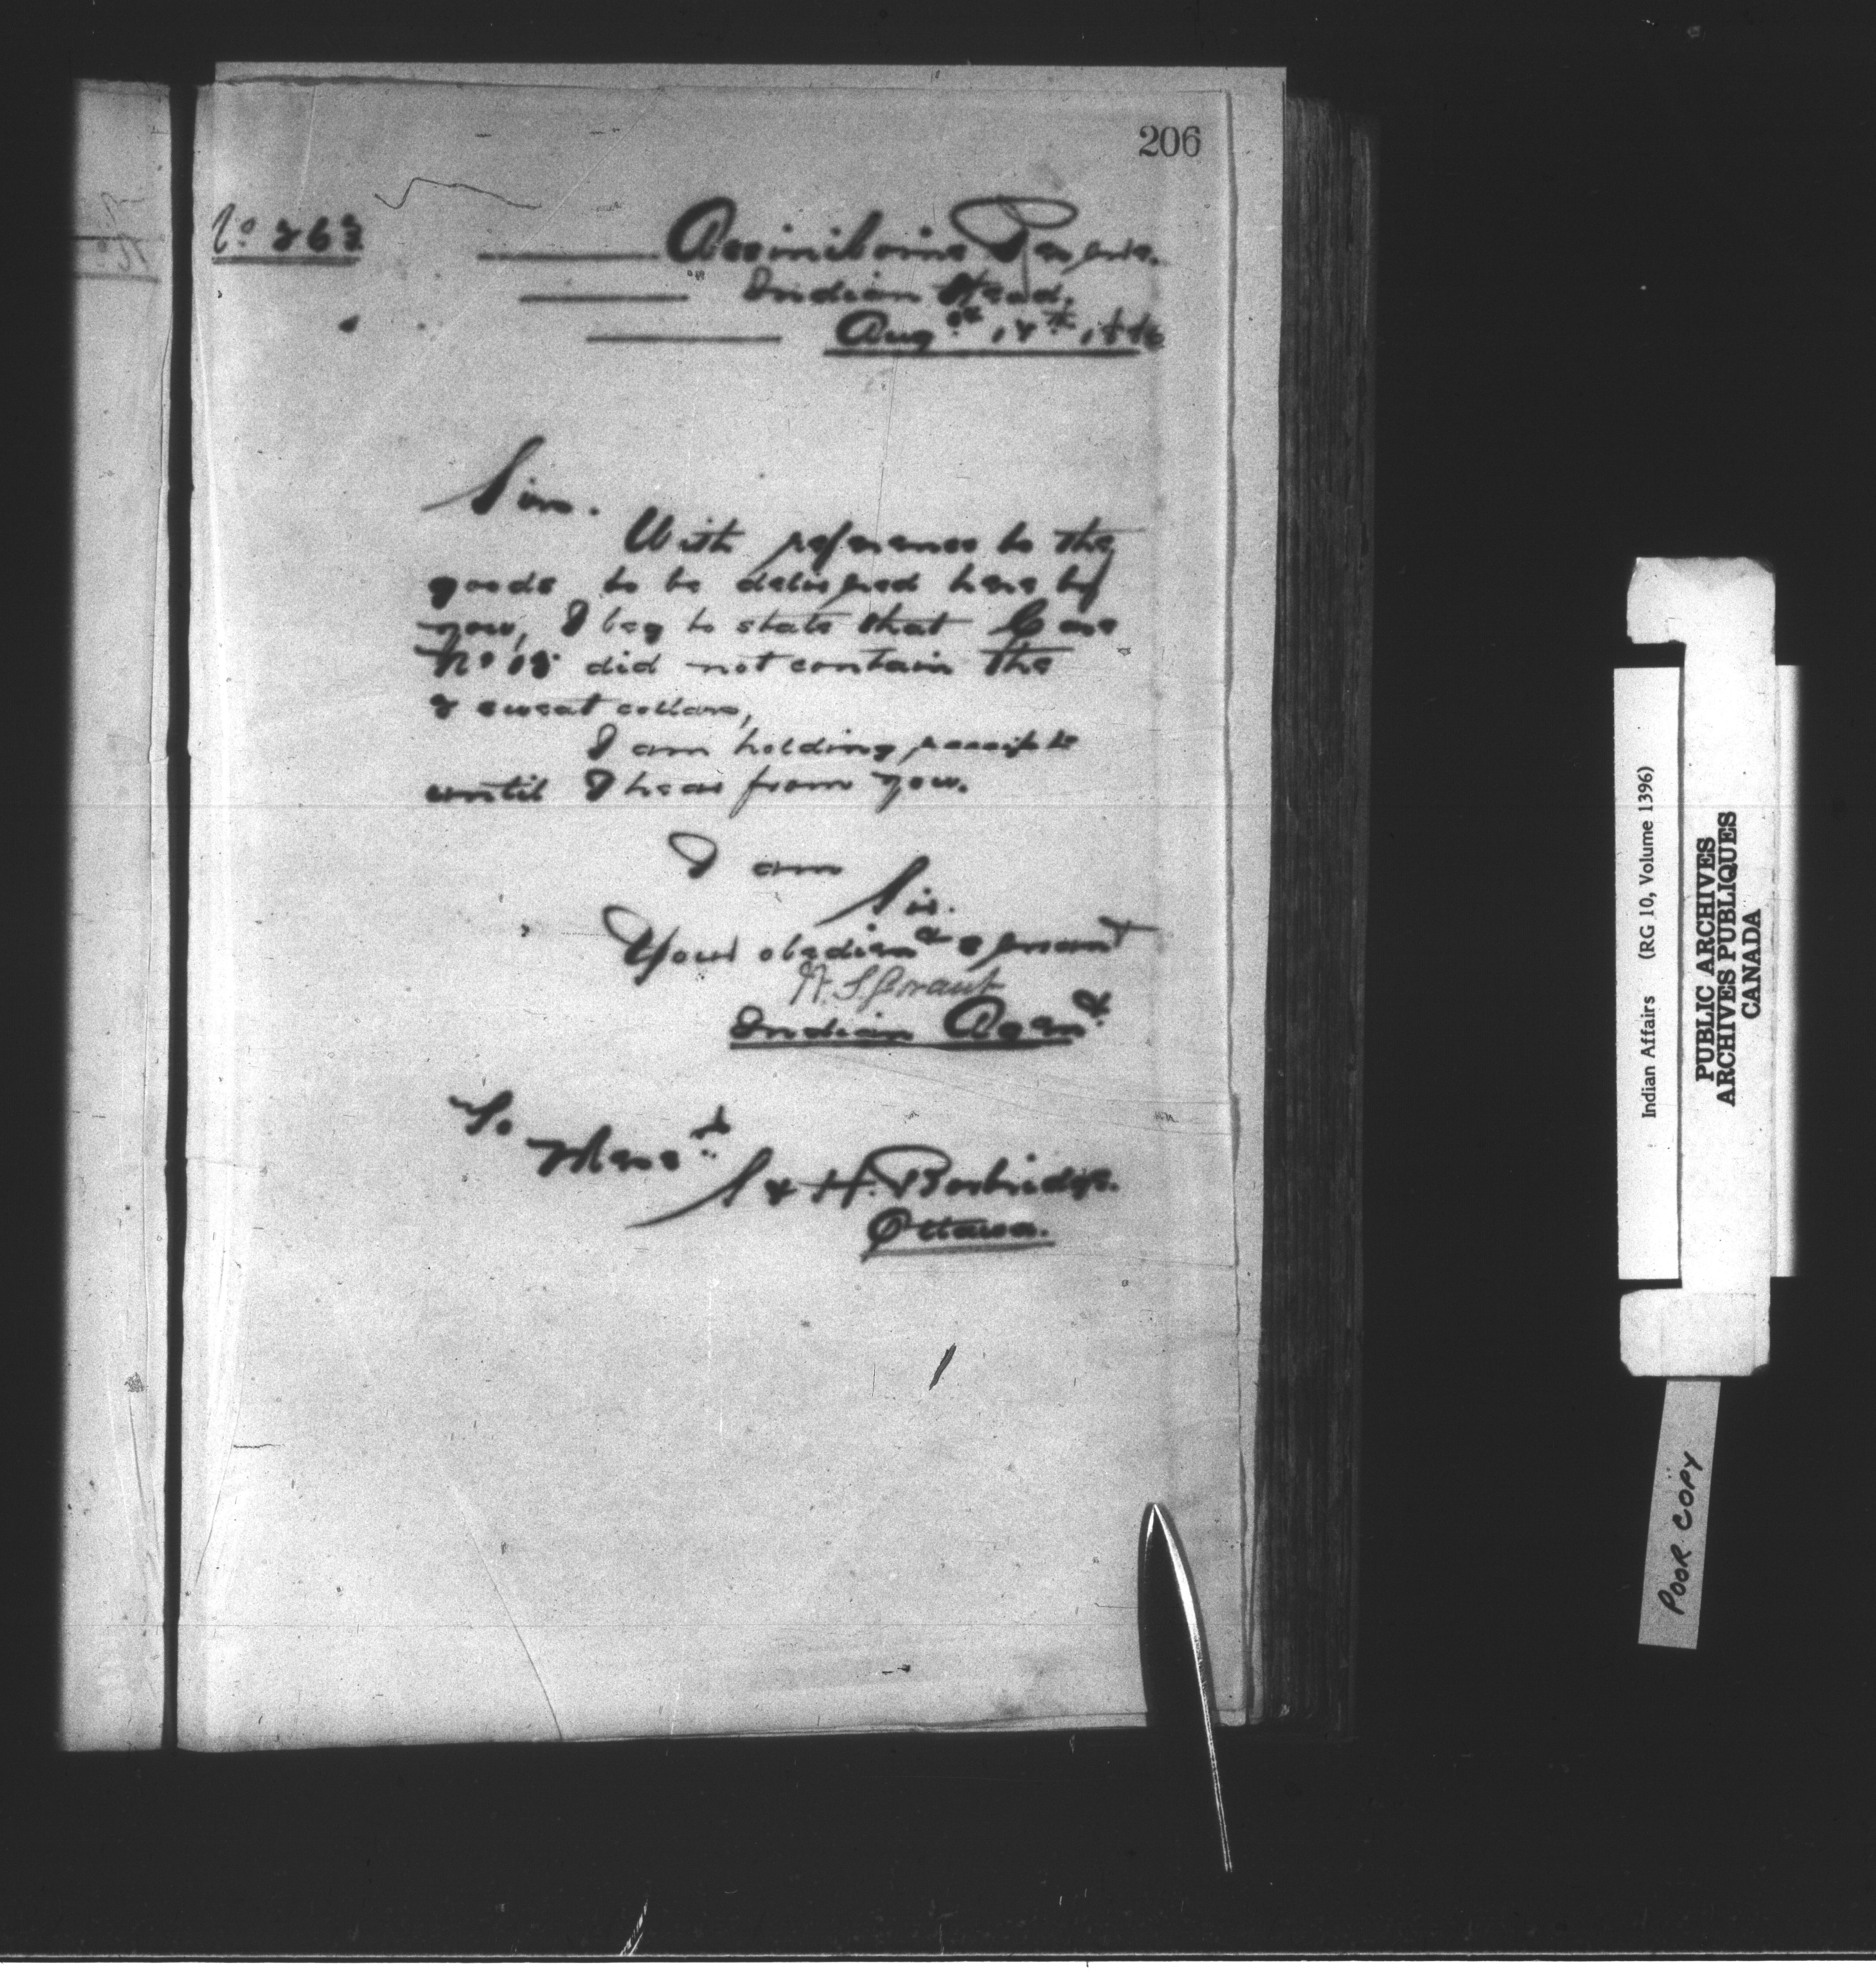 206
No 263
Assiniboine Reserve.
Indian Head.
Aug st 1886
Sirs.
With reference to the
goods to be delivered here by
you, I beg to state that Case
No did not contain the
2 sweat collars,
I am holding receipts
until I hear from you.
I am
Sir.
Your obedient servant
W. S. Grant
Indian Agent
To
Mess rs
S & H. Borbridge.
Ottawa.
Indian Affairs (RG 10, Volume 1396)
PUBLIC ARCHIVES
ARCHIVES PUBLIQUES
CANADA
POOR COPY